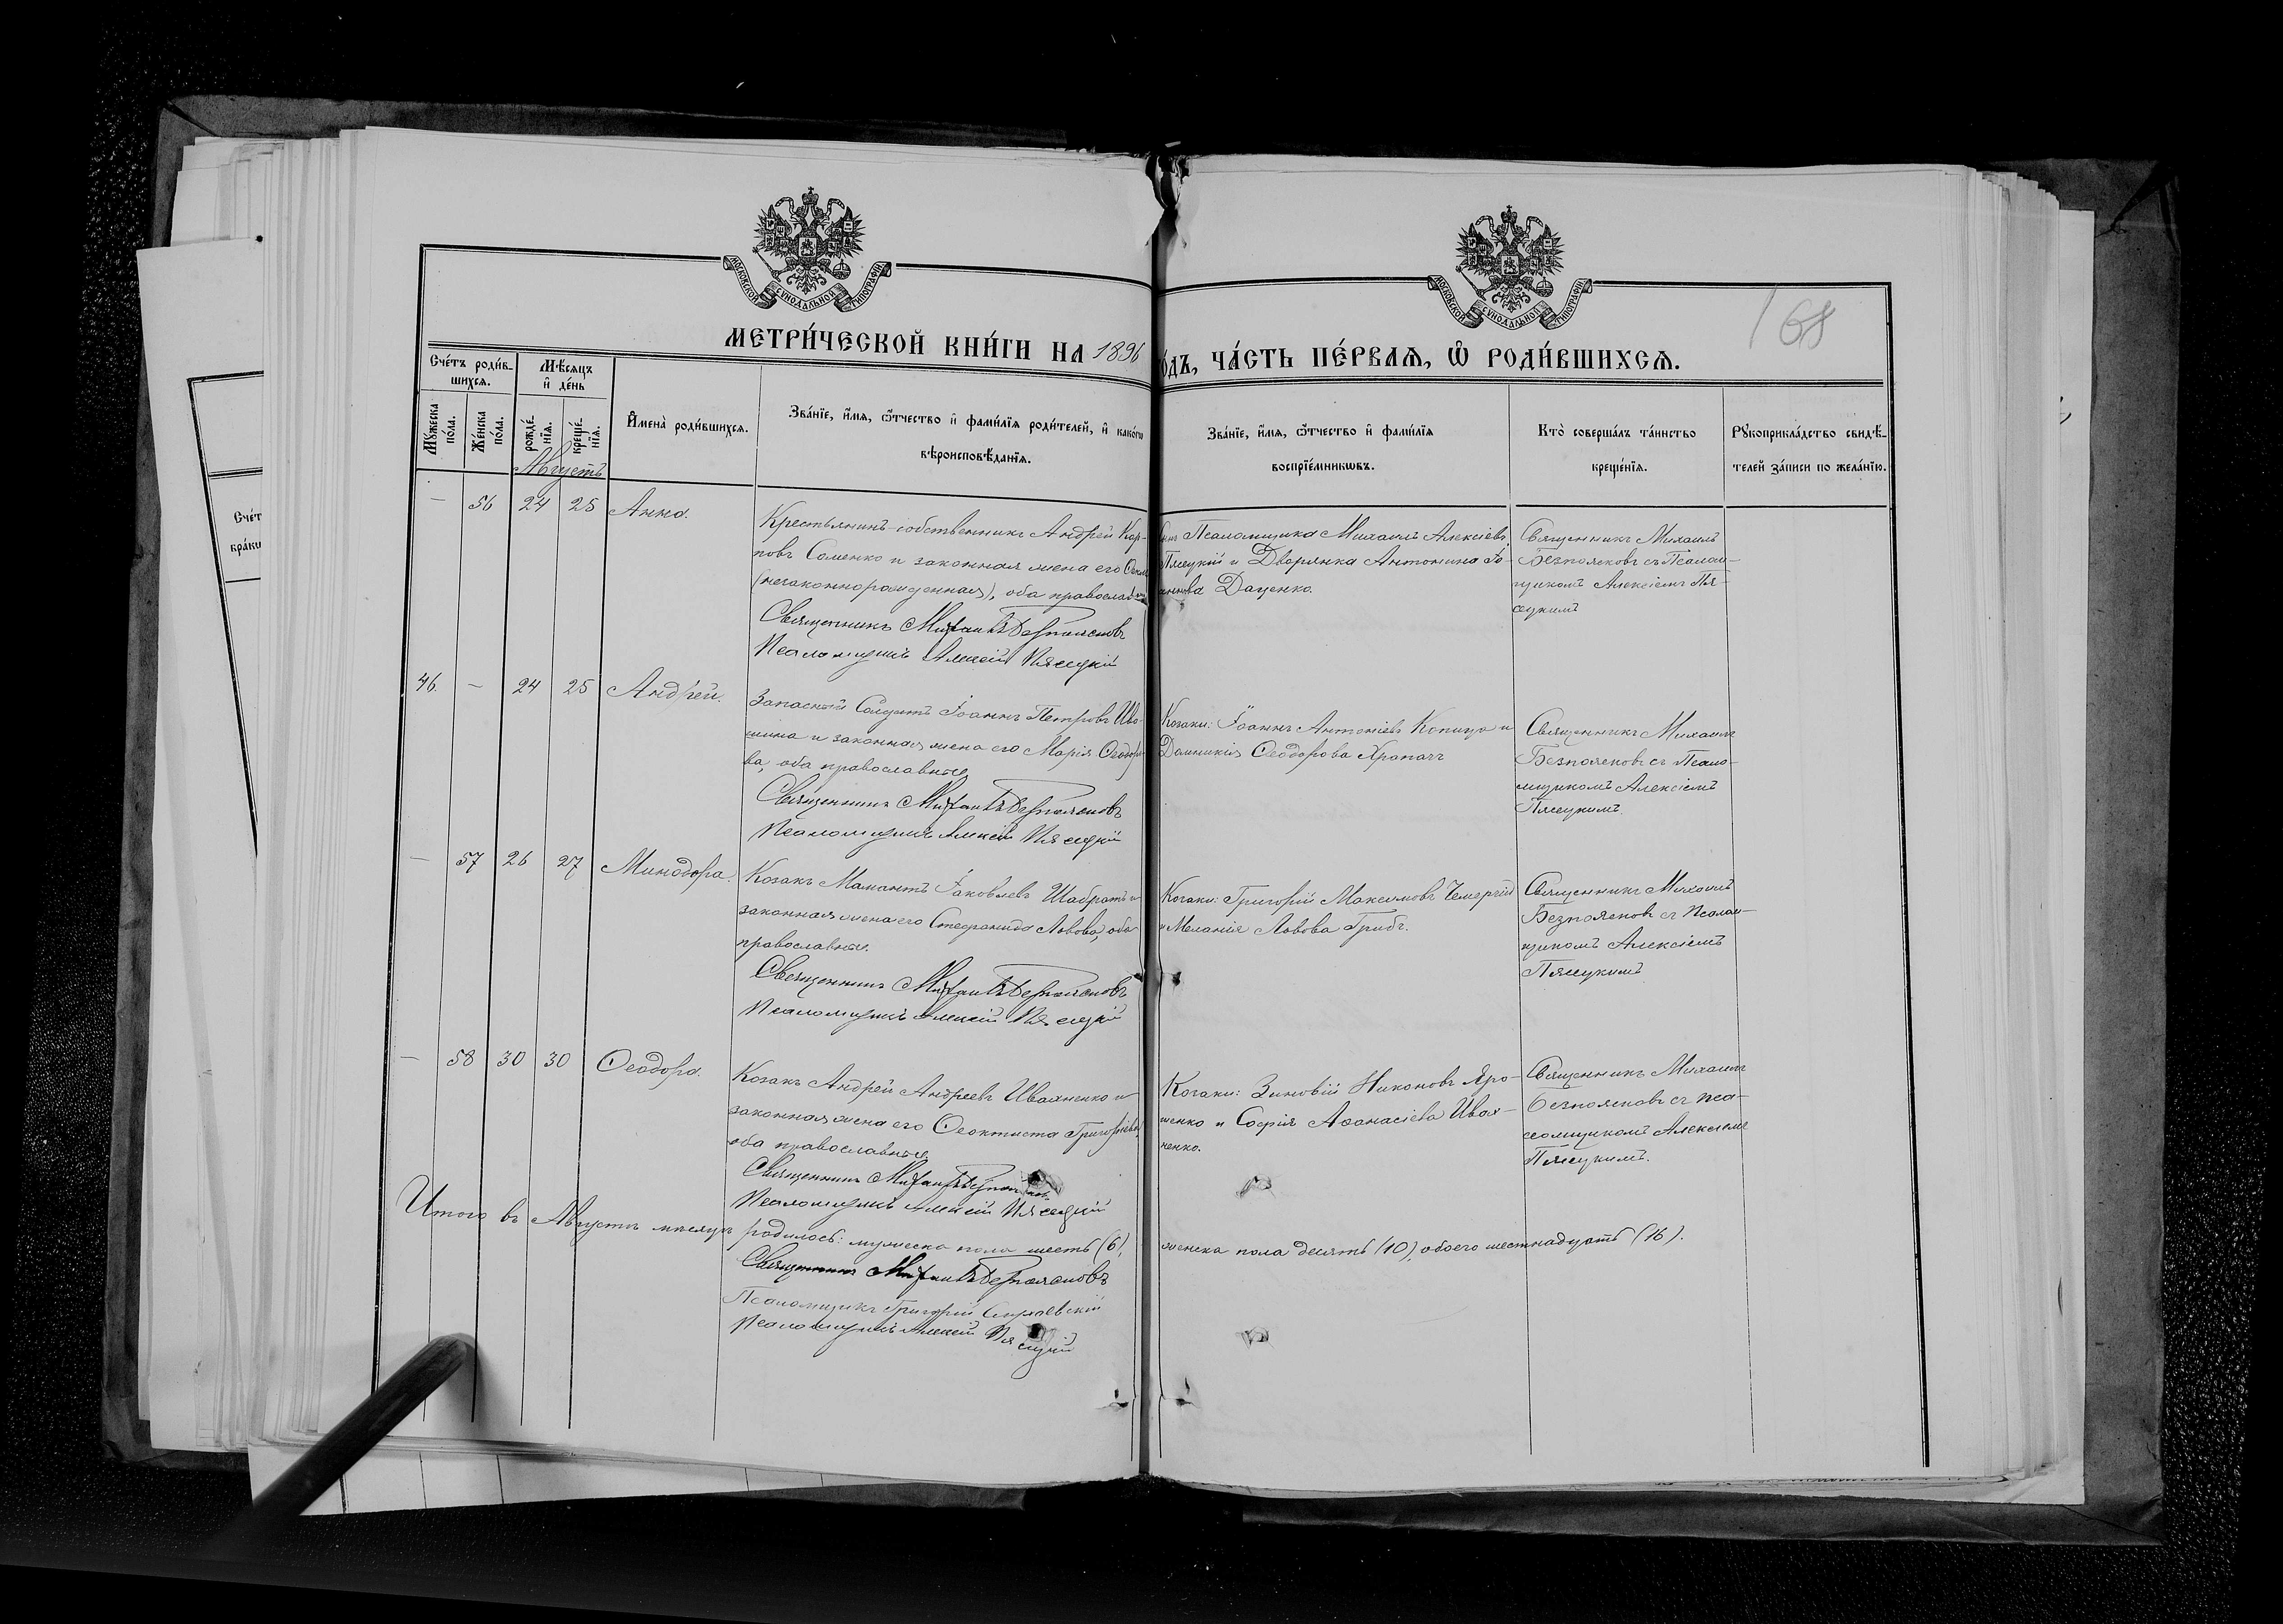 МОСКОВСКОЙ СУНОДАЛЬНОЙ ТИПОГРАФІИ
МОСКОВСКОЙ СУНОДАЛЬНОЙ ТИПОГРАФІИ
168
МЕТРИ́ЧЕСКОЙ КНИ́ГИ НА 1896
ОДЪ, ЧА́СТЬ ПЕ́РВАЯ, Ѽ РОДИ́ВШИХСЯ.
Сче́тъ роди́в-
шихся.
Мѣсяцъ
и҆ де́нь
Мꙋ́жеска
по́ла.
Же́нска
по́ла.
рожде́-
нїя.
креще́-
нїя.
И҆мена̀ роди́вшихся.
Зва́нїе, и҆́мя, ѻ҆́тчество и҆ фами́лїя роди́телей, и҆ како́гѡ
вѣроисповѣ́данїя.
Зва́нїе, и҆́мя, ѻ҆́тчество и҆ фами́лїя
воспрїе́мникѡвъ.
Кто̀ соверша́лъ та́инство
креще́нїя.
Рꙋкоприкла́дство свидѣ́-
телей за́писи по жела́нїю.
Августъ
— 56 24 25 Анна.
Крестьянинъ-собственникъ Андрей Кар-
повъ Соменко и законная жена его
(незаконнорожденная), оба православные
Священникъ Михаилъ Безпоясковъ
Псаломщикъ Алексій Пясецкій
Сынъ Псаломщика Михаилъ Алексіевъ
Пясецкій и Дворянка Антонина Іо-
аннова Даценко.
Священникъ Михаилъ
Безпоясковъ съ Псалом-
щикомъ Алексіемъ Пя-
сецкимъ
46. — 24 25 Андрей.
Запасной Солдатъ Іоаннъ Петровъ Иво-
шина и законная жена его Марія Ѳеодоро-
ва, оба православные
Священникъ Михаилъ Безпоясковъ
Псаломщикъ Алексій Пясецкій
Козаки: Іоаннъ Антоніевъ Копица и
Домникія Ѳеодорова Храпачъ
Священникъ Михаилъ
Безпоясковъ съ Псало-
мщикомъ Алексіемъ
Пясецкимъ.
— 57 26 27 Минодора.
Козакъ Мамантъ Іаковлевъ Шабратъ и
законная жена его Стефанида Львова, оба
православные.
Священникъ Михаилъ Безпоясковъ
Псаломщикъ Алексій Пясецкій
Козаки: Григорій Максимовъ
и Меланія Львова Грибъ.
Священникъ Михаилъ
Безпоясковъ съ Псалом-
щикомъ Алексіемъ
Пясецкимъ
— 58 30 30 Ѳеодора.
Козакъ Андрей Андреевъ Ивахненко и
законная жена его Ѳеоктиста Григоріева,
оба православные
Священникъ Михаилъ
Псаломщикъ Алексій Пясецкій
Козаки: Зиновій Никоновъ Яро-
шенко и Софія Аѳанасіева Ивах-
ненко.
Священникъ Михаилъ
Безпоясковъ съ Пса-
ломщикомъ Алексіемъ
Пясецкимъ.
Итого въ Августѣ мѣсяцѣ родилось: мужеска пола шесть (6),
женска пола десять (10), обоего шестнадцать (16).
Священникъ Михаилъ Безпоясковъ
Псаломщикъ Григорій
Псаломщикъ Алексій Пясецкій
Сче́т
бра́ки